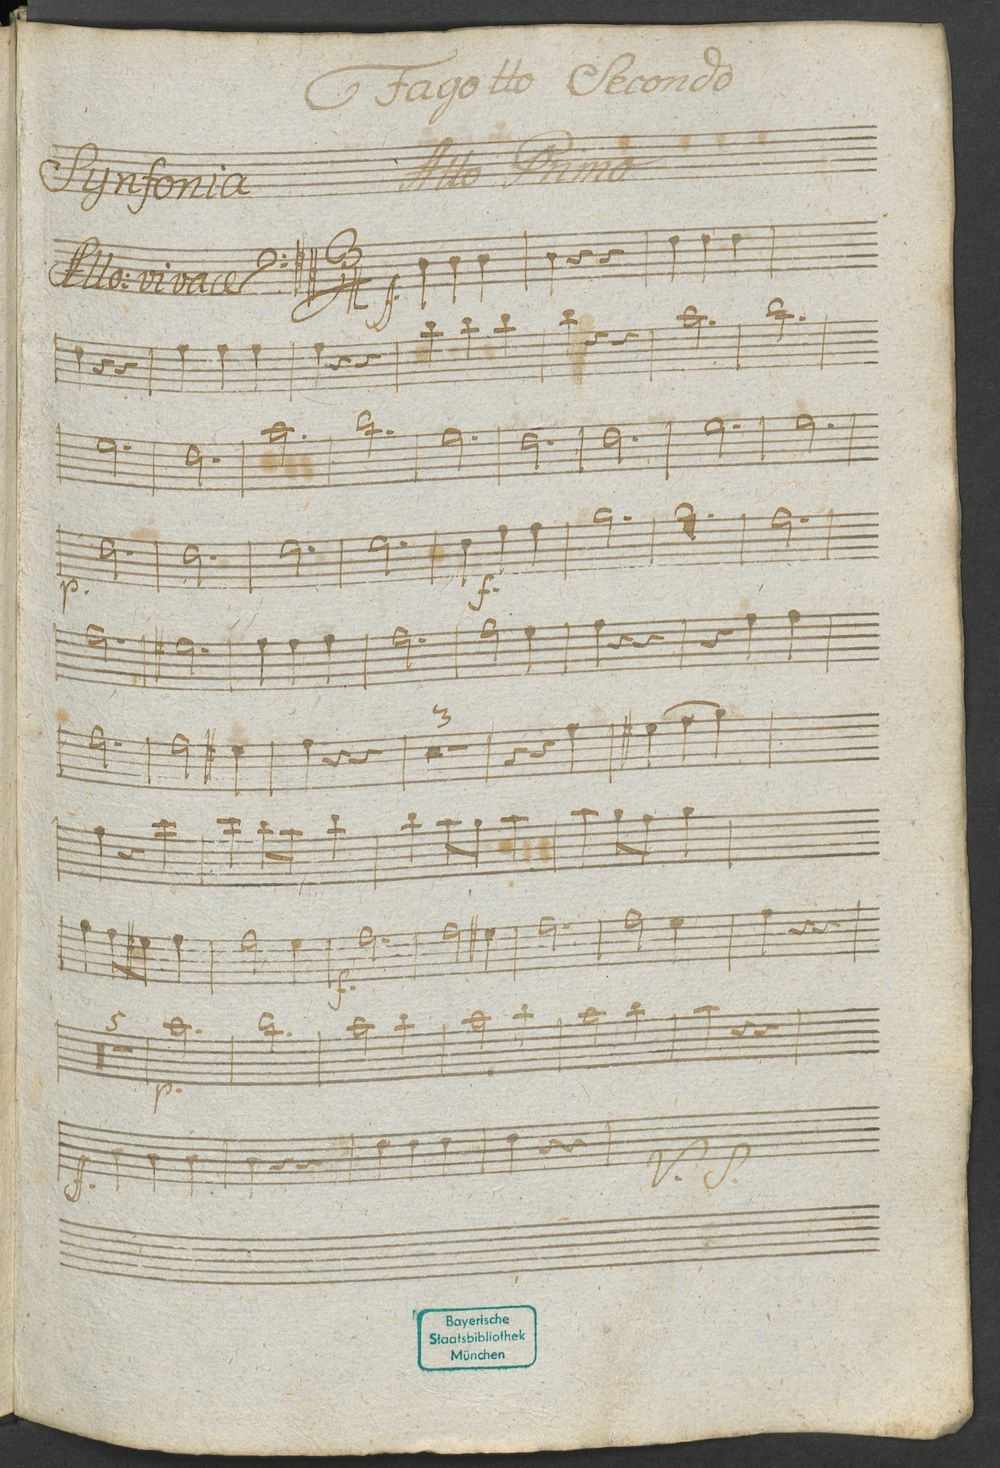 Fagotto Secondo
Synfonia Atto Primo
Allo: vivace 3/4 f.
p. f.
3
f.
5
p.
f. V. S.
Bayerische
Staatsbibliothek
München